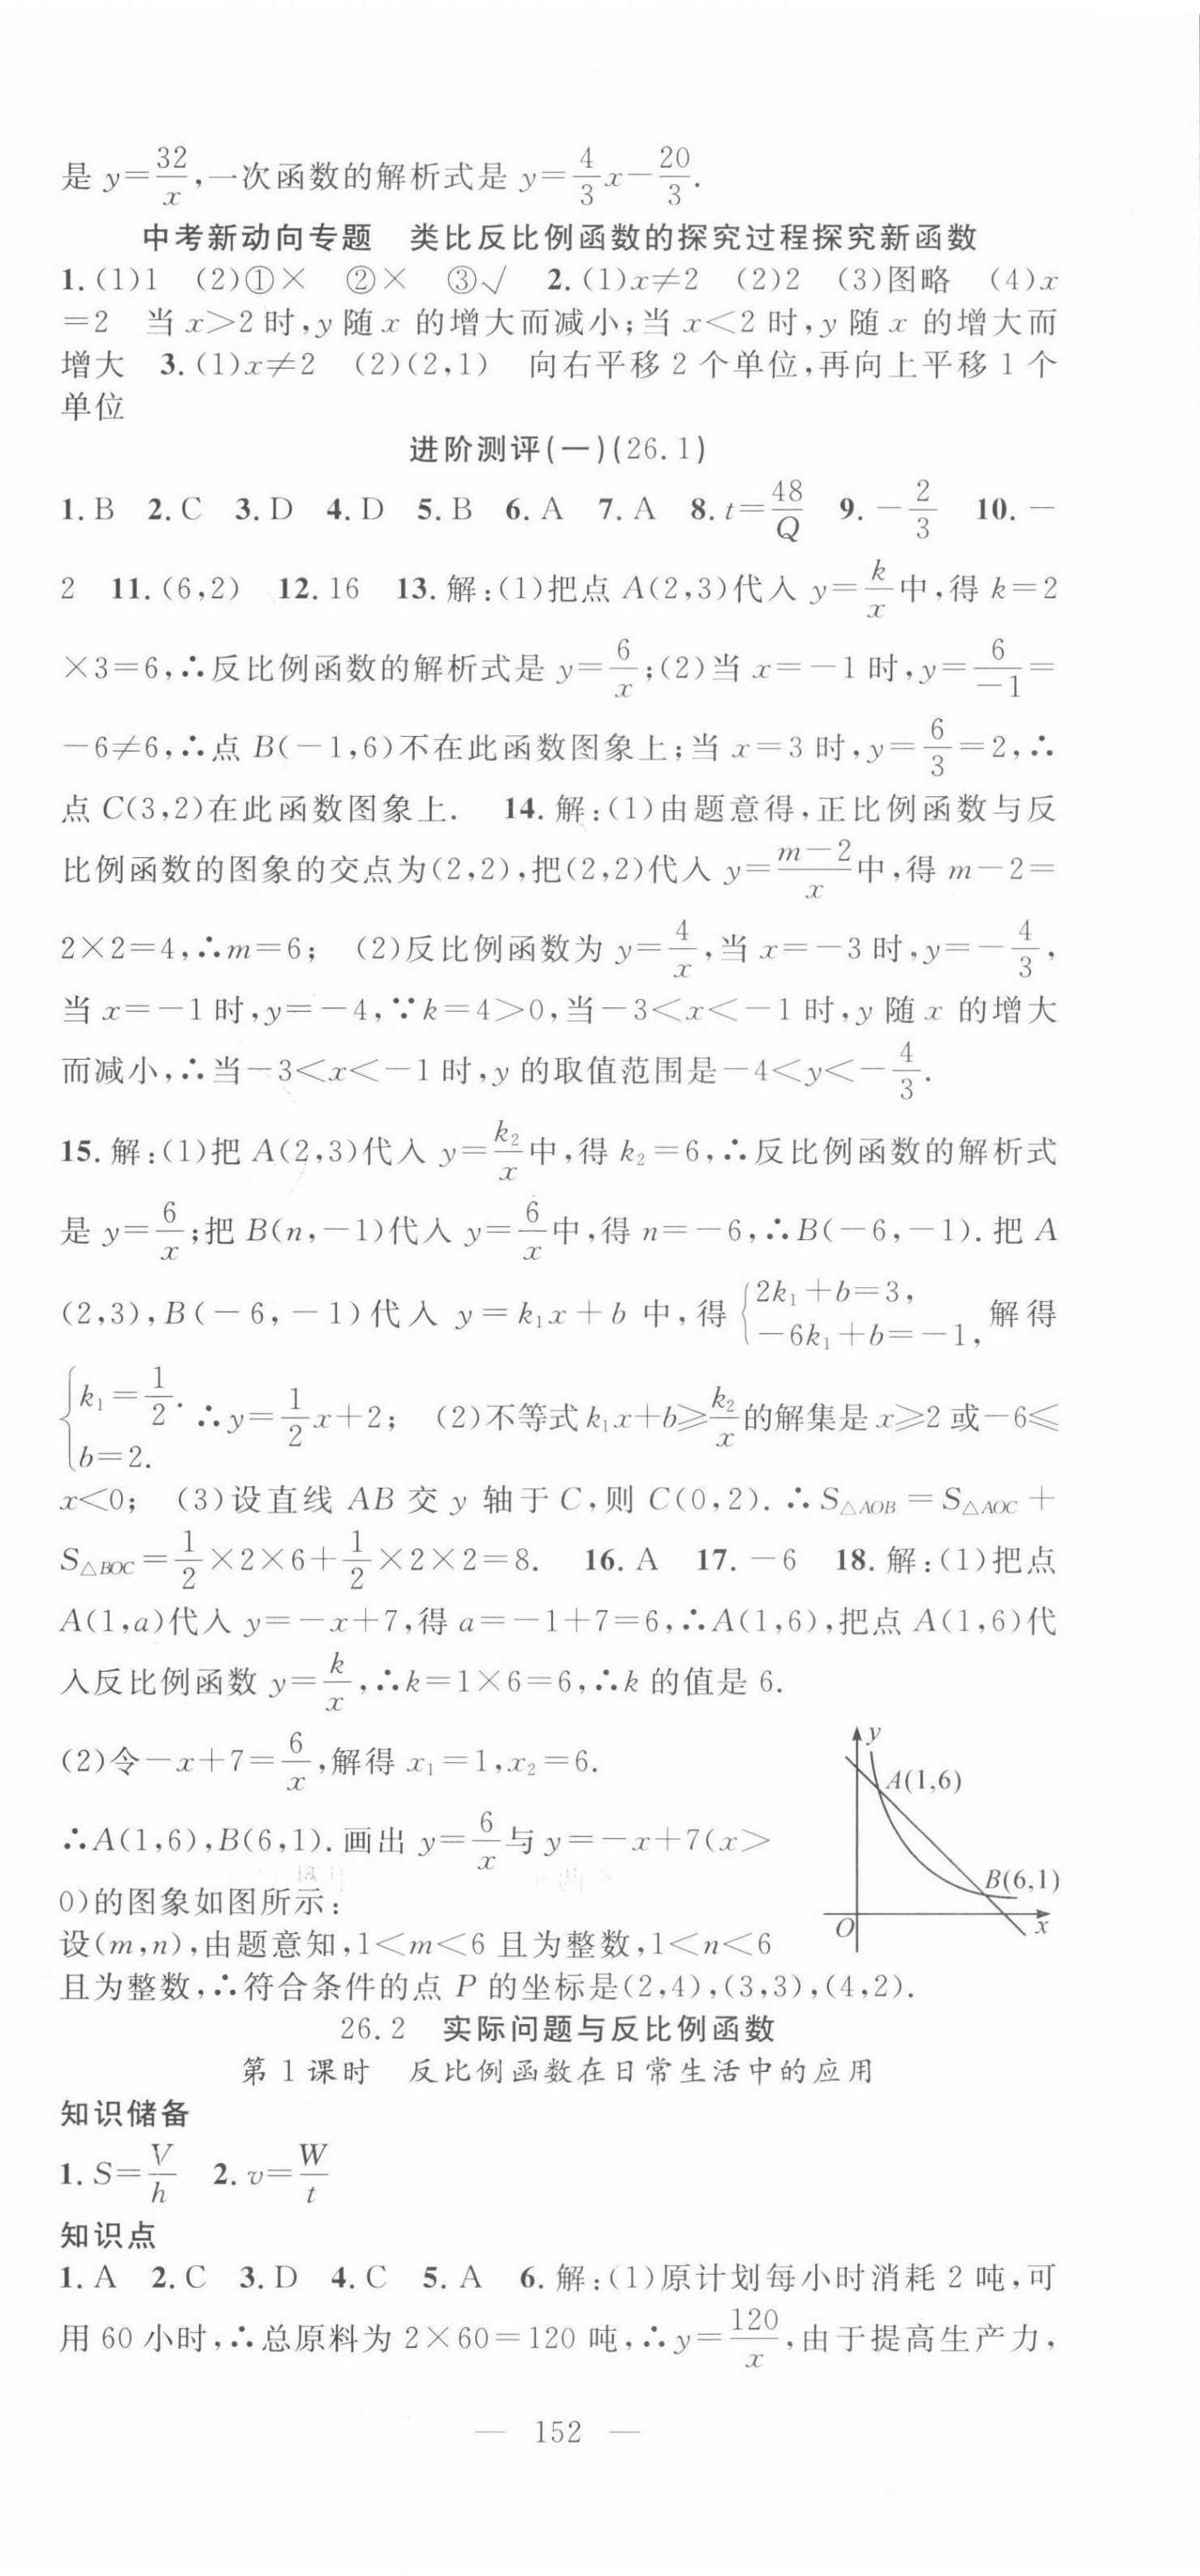 是 y=32/x,一次函数的解析式是 y=4/3x-20/3.
中考新动向专题 类比反比例函数的探究过程探究新函数
1.(1)1 (2)①× ②× ③√ 2.(1)x≠2 (2)2 (3)图略 (4)x
=2 当 x>2 时,y 随 x 的增大而减小;当 x<2 时,y 随 x 的增大而
增大 3.(1)x≠2 (2)(2,1) 向右平移 2 个单位,再向上平移 1 个
单位
进阶测评(一)(26.1)
1.B 2.C 3.D 4.D 5.B 6.A 7.A 8.t=48/Q 9.-2/3 10.-
2 11.(6,2) 12.16 13.解:(1)把点 A(2,3)代入 y=k/x中,得 k=2
×3=6,∴反比例函数的解析式是 y=6/x;(2)当 x=-1 时,y=6/-1=
-6≠6,∴点 B(-1,6)不在此函数图象上;当 x=3 时,y=6/3=2,∴
点 C(3,2)在此函数图象上. 14.解:(1)由题意得,正比例函数与反
比例函数的图象的交点为(2,2),把(2,2)代入 y=m-2/x中,得 m-2=
2×2=4,∴m=6; (2)反比例函数为 y=4/x,当 x=-3 时,y=-4/3,
当 x=-1 时,y=-4,∵k=4>0,当-3<x<-1 时,y 随 x 的增大
而减小,∴当-3<x<-1 时,y 的取值范围是-4<y<-4/3.
15.解:(1)把 A(2,3)代入 y=k₂/x中,得 k₂=6,∴反比例函数的解析式
是 y=6/x;把 B(n,-1)代入 y=6/x中,得 n=-6,∴B(-6,-1).把 A
(2,3),B(-6,-1)代入 y=k₁x+b 中,得{2k₁+b=3, -6k₁+b=-1, 解得
{k₁=1/2. b=2. ∴y=1/2x+2; (2)不等式 k₁x+b≥k₂/x的解集是 x≥2 或-6≤
x<0; (3)设直线 AB 交 y 轴于 C,则 C(0,2).∴S△AOB=S△AOC+
S△BOC=1/2×2×6+1/2×2×2=8. 16.A 17.-6 18.解:(1)把点
A(1,a)代入 y=-x+7,得 a=-1+7=6,∴A(1,6),把点 A(1,6)代
入反比例函数 y=k/x,∴k=1×6=6,∴k 的值是 6.
(2)令-x+7=6/x,解得 x₁=1,x₂=6.
∴A(1,6),B(6,1).画出 y=6/x与 y=-x+7(x>
0)的图象如图所示:
设(m,n),由题意知,1<m<6 且为整数,1<n<6
且为整数,∴符合条件的点 P 的坐标是(2,4),(3,3),(4,2).
y
A(1,6)
B(6,1)
O
x
26.2 实际问题与反比例函数
第 1 课时 反比例函数在日常生活中的应用
知识储备
1.S=V/h 2.v=W/t
知识点
1.A 2.C 3.D 4.C 5.A 6.解:(1)原计划每小时消耗 2 吨,可
用 60 小时,∴总原料为 2×60=120 吨,∴y=120/x,由于提高生产力,
— 152 —